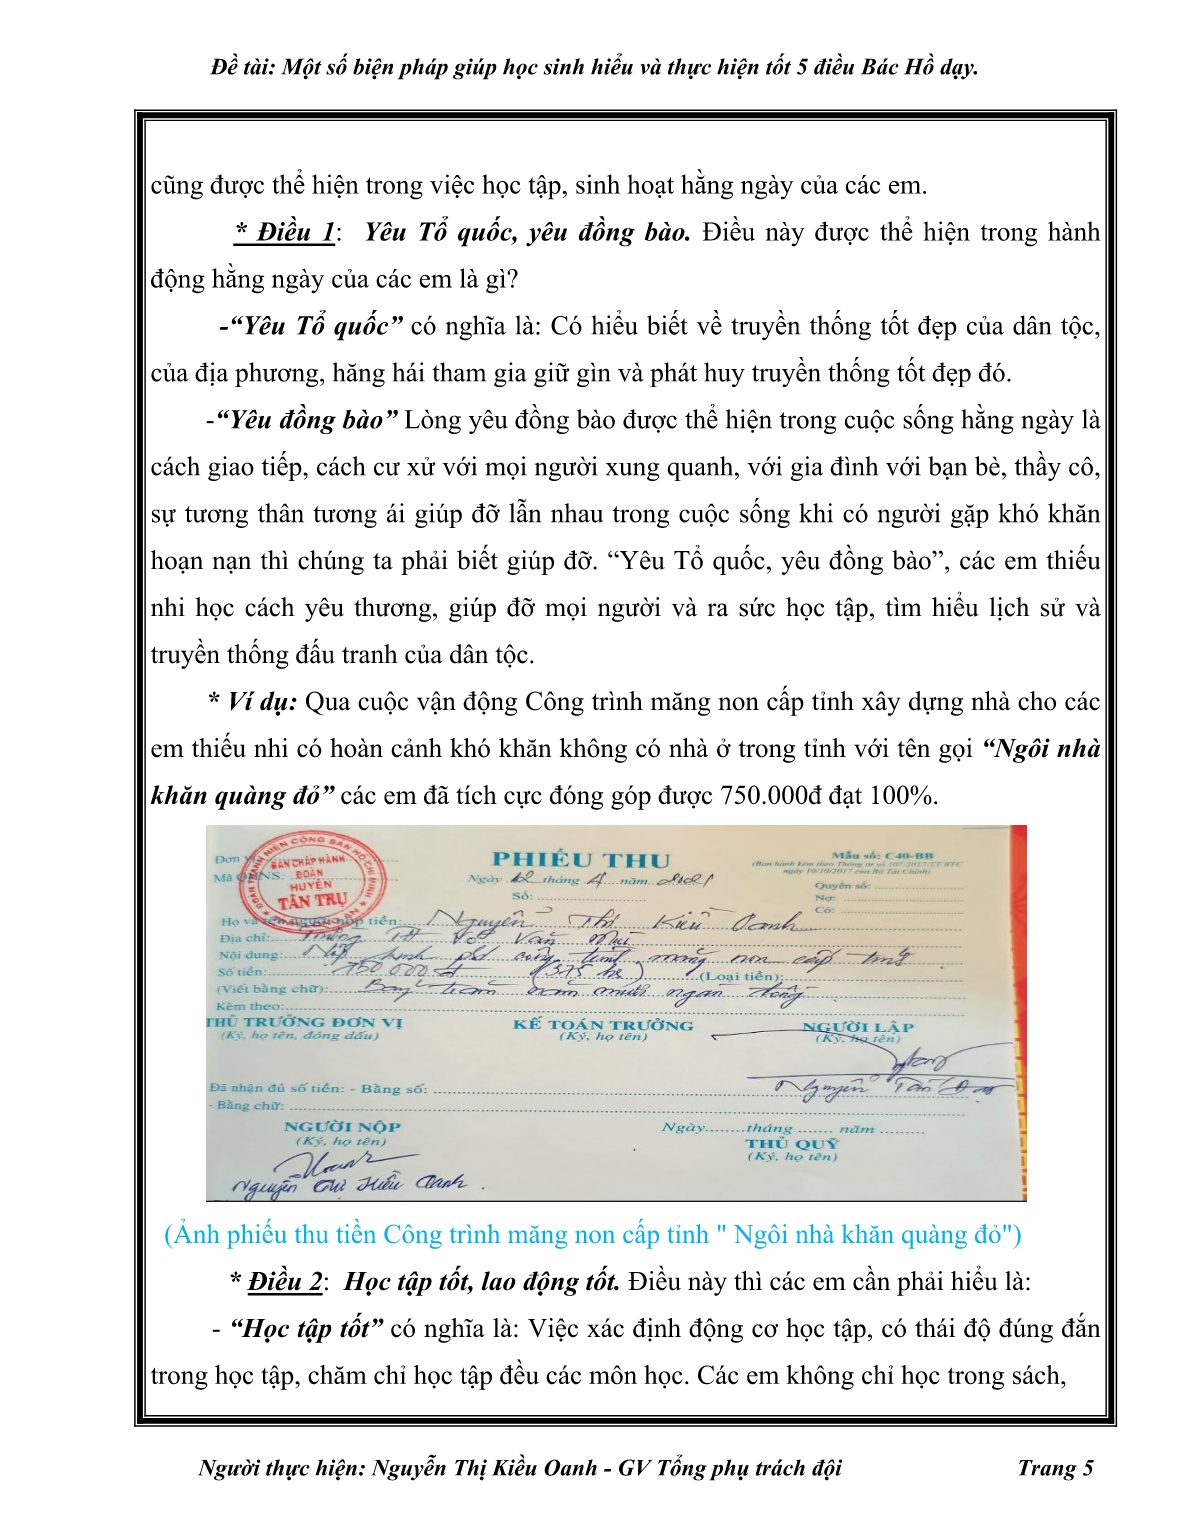 Đề tài: Một số biện pháp giúp học sinh hiểu và thực hiện tốt 5 điều Bác Hồ dạy.
cũng được thể hiện trong việc học tập, sinh hoạt hằng ngày của các em.
* Điều 1: Yêu Tổ quốc, yêu đồng bào. Điều này được thể hiện trong hành
động hằng ngày của các em là gì?
-“Yêu Tổ quốc” có nghĩa là: Có hiểu biết về truyền thống tốt đẹp của dân tộc,
của địa phương, hăng hái tham gia giữ gìn và phát huy truyền thống tốt đẹp đó.
-“Yêu đồng bào” Lòng yêu đồng bào được thể hiện trong cuộc sống hằng ngày là
cách giao tiếp, cách cư xử với mọi người xung quanh, với gia đình với bạn bè, thầy cô,
sự tương thân tương ái giúp đỡ lẫn nhau trong cuộc sống khi có người gặp khó khăn
hoạn nạn thì chúng ta phải biết giúp đỡ. “Yêu Tổ quốc, yêu đồng bào”, các em thiếu
nhi học cách yêu thương, giúp đỡ mọi người và ra sức học tập, tìm hiểu lịch sử và
truyền thống đấu tranh của dân tộc.
* Ví dụ: Qua cuộc vận động Công trình măng non cấp tỉnh xây dựng nhà cho các
em thiếu nhi có hoàn cảnh khó khăn không có nhà ở trong tỉnh với tên gọi “Ngôi nhà
khăn quàng đỏ” các em đã tích cực đóng góp được 750.000đ đạt 100%.
Đơn
Mã QHNS:
BAN CHẤP HÀNH
ĐOÀN
HUYỆN
TÂN TRỤ
PHIẾU THU
Ngày 12 tháng 4 năm 2021
Số:
Mẫu số: C40-BB
(Ban hành kèm theo Thông tư số 107/2017/TT-BTC
ngày 10/10/2017 của Bộ Tài Chính)
Quyển số:
Nợ:
Có:
Họ và tên người nộp tiền: Nguyễn Thị Kiều Oanh
Địa chỉ: Trường TH Võ Văn
Nội dung: Nộp kinh phí công trình măng non cấp tỉnh
Số tiền: 750.000đ (375 hs) (Loại tiền):
(Viết bằng chữ): Bảy trăm năm mươi ngàn đồng
Kèm theo:
THỦ TRƯỞNG ĐƠN VỊ
(Ký, họ tên, đóng dấu)
KẾ TOÁN TRƯỞNG
(Ký, họ tên)
NGƯỜI LẬP
(Ký, họ tên)
Nguyễn
Đã nhận đủ số tiền: - Bằng số:
- Bằng chữ:
NGƯỜI NỘP
(Ký, họ tên)
Ngày tháng năm
THỦ QUỸ
(Ký, họ tên)
Nguyễn Thị Kiều Oanh
(Ảnh phiếu thu tiền Công trình măng non cấp tỉnh " Ngôi nhà khăn quàng đỏ")
* Điều 2: Học tập tốt, lao động tốt. Điều này thì các em cần phải hiểu là:
- “Học tập tốt” có nghĩa là: Việc xác định động cơ học tập, có thái độ đúng đắn
trong học tập, chăm chỉ học tập đều các môn học. Các em không chỉ học trong sách,
Người thực hiện: Nguyễn Thị Kiều Oanh - GV Tổng phụ trách đội Trang 5